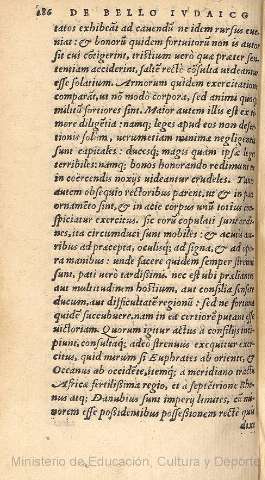 486 DE BELLO IVDAICO
tatos exhibeãt ad cauendũ ne idem rursus eue
niat: & bonorũ quidem fortuitorũ non is autor
sit cui cõtigerint, tristium uerò quæ præter sen
tentiam acciderint, saltẽ rectè cõsulta uideantur
esse solatium. Armorum quidem exercitatione
comparãt, ut nõ modò corpora, sed animi quoq;
militũ fortiores sint. Maior autem illis est ex ti
more diligẽtia: namq; leges apud eos non deser
tionis solum, uerumetiam minima negligentia
sunt capitales: ducesq; magis quàm ipsæ leges
terribiles: namq; bonos honorando redimunt ne
in coercendis noxijs uideantur crudeles. Tanto
autem obsequio rectoribus parent, ut & in pace
ornamẽto sint, & in acie corpus unũ totius con
spiciatur exercitus. sic eorũ copulati sunt ordi
nes, ita circumduci sunt mobiles: & acutis au
ribus ad præcepta, oculisq; ad signa, & ad ope
ra manibus: unde facere quidem semper strenui
sunt, pati uerò tardißimi. nec est ubi præliantes
aut multitudinem hostium, aut consilia senserint
ducum, aut difficultatẽ regionũ: sed ne fortunæ
quidẽ succubuere, nam in ea certiorẽ putant esse
uictoriam. Quorum igitur actus à consilijs inci
piunt, consultaq; adeò strenuus exequitur exer
citus, quid mirum si Euphrates ab oriente, &
Oceanus ab occidẽte, itemq; à meridiano tractu
Africæ fertilißima regio, et à septẽtrione Rhe
nus atq; Danubius sunt imperij limites, cũ mi
norem esse poßidentibus poßessionem rectè quis
dixe
Ministerio de Educación, Cultura y Deporte